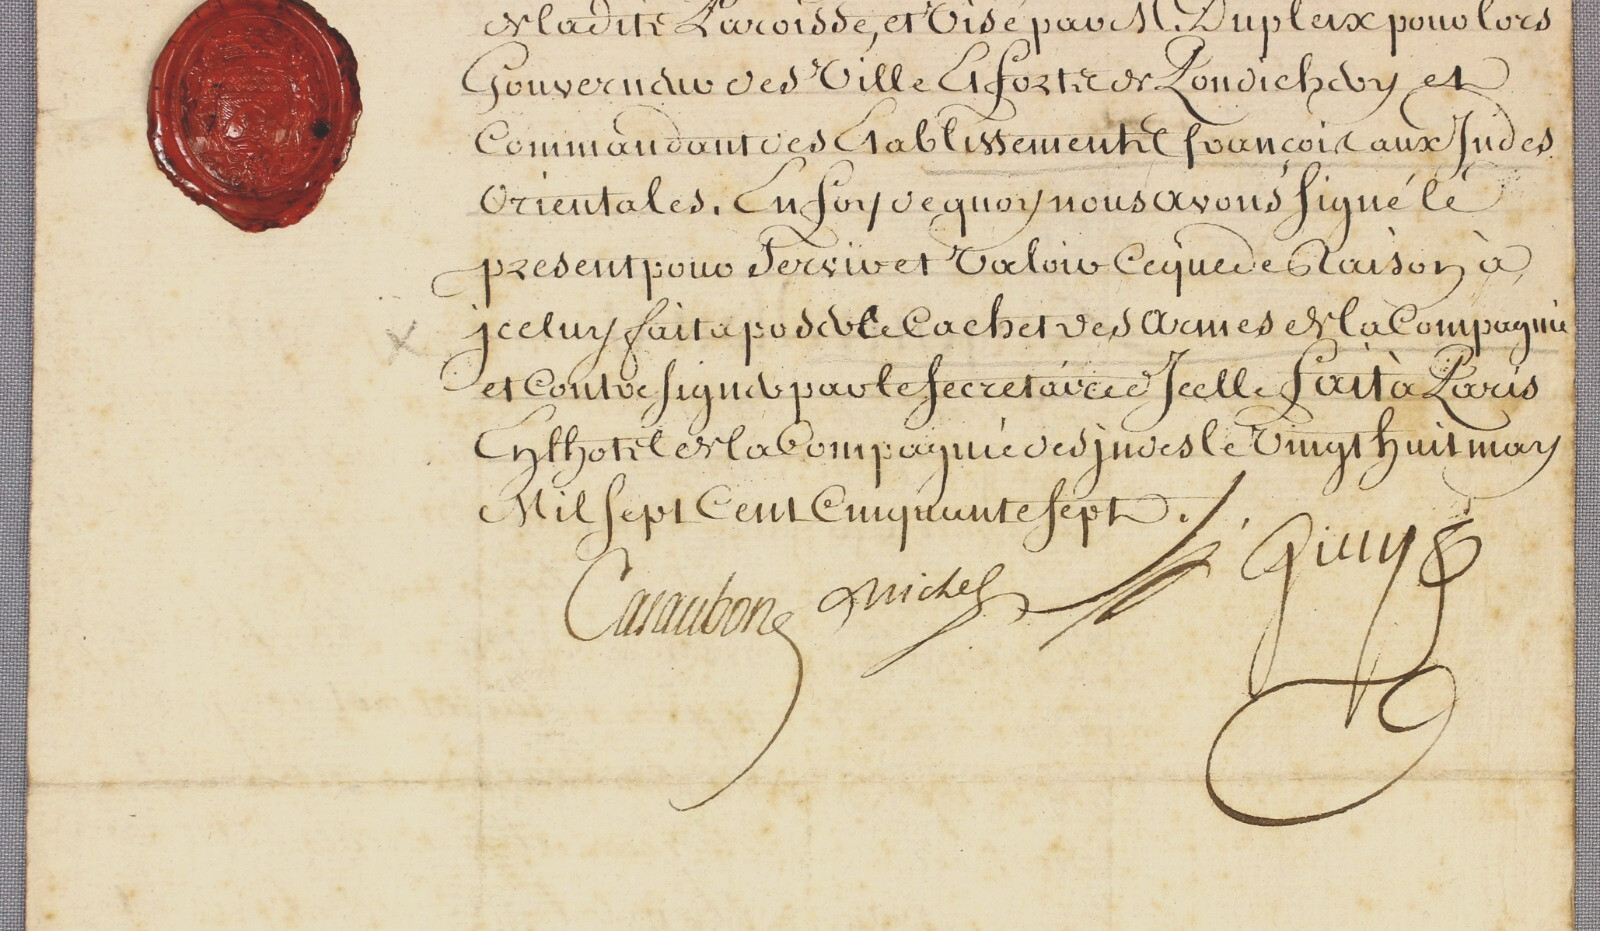 de ladite Paroisse, et Visé par M. Dupleix pour lors
Gouverneur des Ville Et forts de Pondichery et
Commandant des Etablissements françois aux Indes
Orientales. En foy de quoy nous avons signé le
present pour Servir et Valoir Ceque de Raison à
jceluy fait aposer le Cachet des Armes de la Compagnie
et Contresigner par le Secretaire d'Jcelle fait à Paris
En lhotel de la Compagnie des jndes le Vingt huit may
Mil sept Cent Cinquante sept.
Casaubon Michel